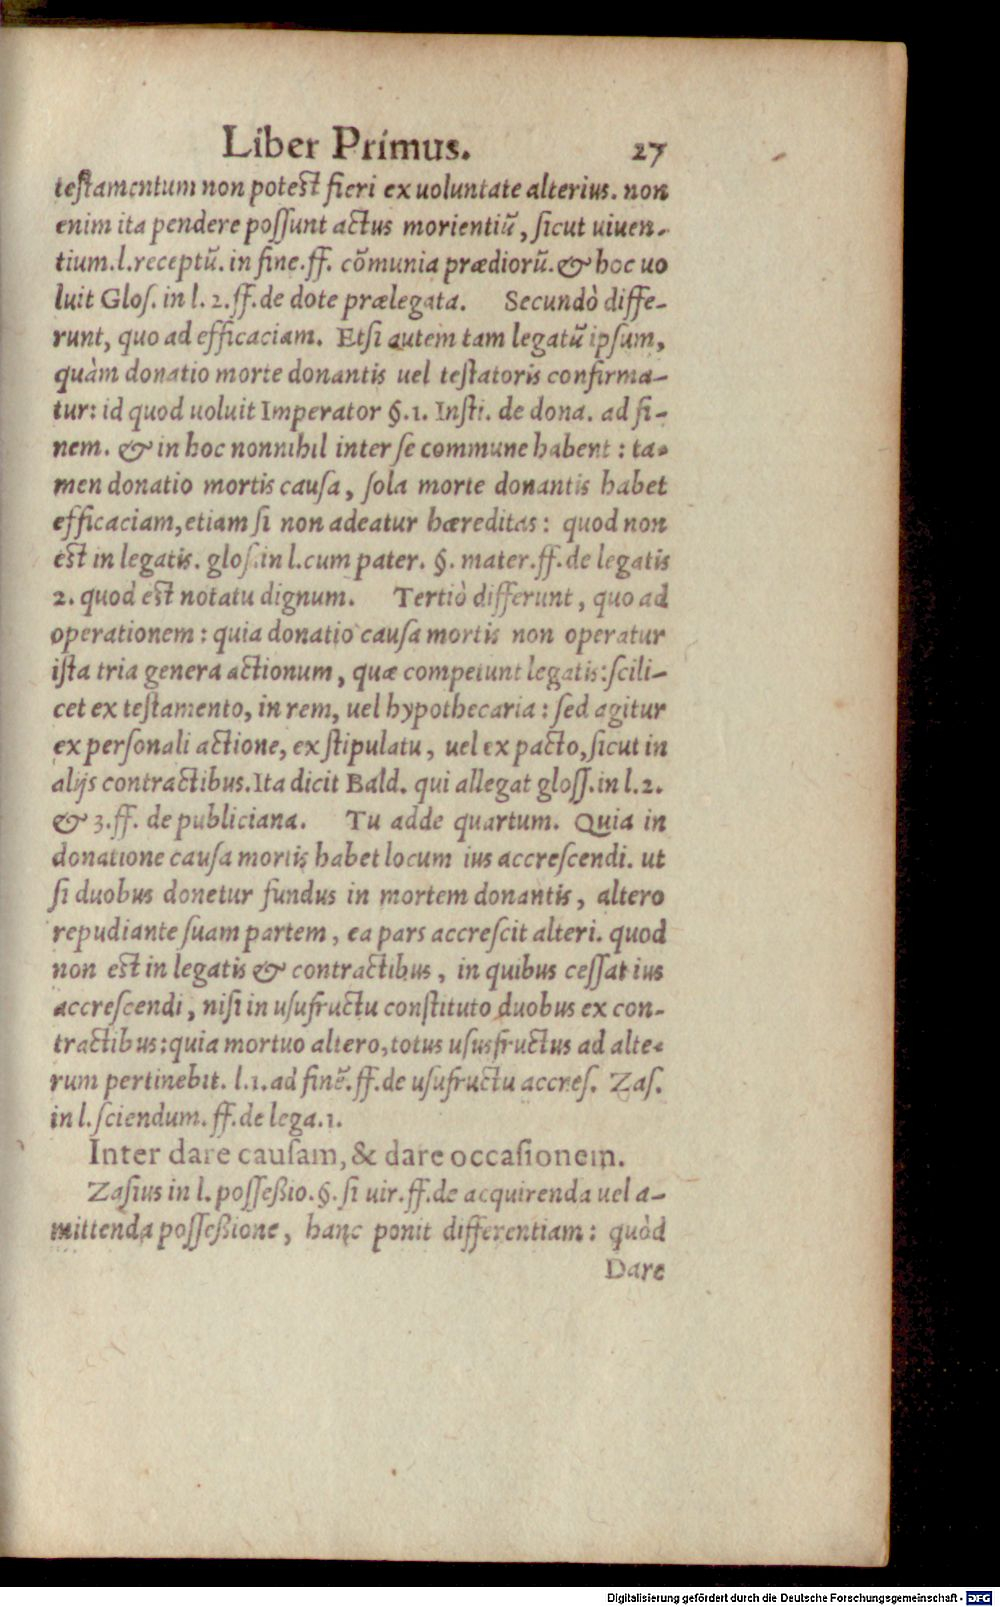 Liber Primus. 27
teſtamentum non poteſt fieri ex uoluntate alterius. non
enim ita pendere poſſunt actus morientiũ, ſicut uiuen-
tium.l.receptũ. in fine.ff. cõmunia prædiorũ.& hoc uo
luit Gloſ. in l. 2. ff. de dote prælegata. Secundò diffe-
runt, quo ad efficaciam. Etſi autem tam legatũ ipſum,
quàm donatio morte donantis uel teſtatoris confirma-
tur: id quod uoluit Imperator §.1. Inſti. de dona. ad fi-
nem. & in hoc nonnihil inter ſe commune habent : ta-
men donatio mortis cauſa, ſola morte donantis habet
efficaciam, etiam ſi non adeatur hæreditas: quod non
eſt in legatis. gloſ.in l.cum pater. §. mater.ff.de legatis
2. quod eſt notatu dignum. Tertiò differunt, quo ad
operationem : quia donatio cauſa mortis non operatur
iſta tria genera actionum, quæ competunt legatis:ſcili-
cet ex teſtamento, in rem, uel hypothecaria : ſed agitur
ex perſonali actione, ex ſtipulatu, uel ex pacto, ſicut in
alijs contractibus.Ita dicit Bald. qui allegat gloſſ.in l.2.
& 3.ff. de publiciana. Tu adde quartum. Quia in
donatione cauſa mortis habet locum ius accreſcendi. ut
ſi duobus donetur fundus in mortem donantis, altero
repudiante ſuam partem, ea pars accreſcit alteri. quod
non eſt in legatis & contractibus, in quibus ceſſat ius
accreſcendi, niſi in uſufructu conſtituto duobus ex con-
tractibus:quia mortuo altero,totus uſusfructus ad alte-
rum pertinebit. l.1.ad finẽ.ff.de uſufructu accreſ. Zaſ.
in l.ſciendum. ff.de lega.1.
Inter dare cauſam, & dare occaſionem.
Zaſius in l. poſſeßio.§.ſi uir.ff.de acquirenda uel a-
mittenda poſſeßione, hanc ponit differentiam: quòd
Dare
Digitalisierung gefördert durch die Deutsche Forschungsgemeinschaft - DFG